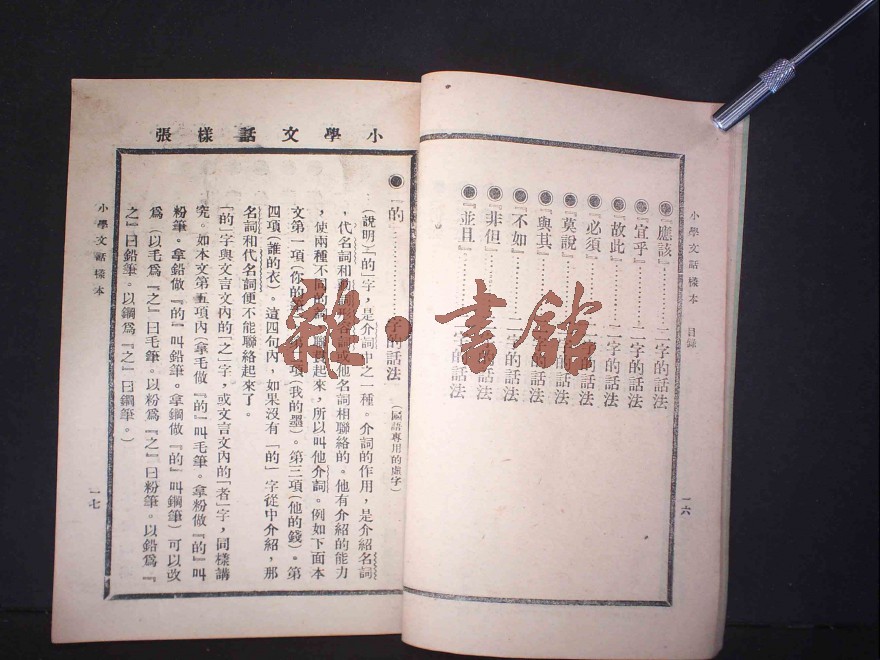 小學文話樣本　目錄
◉『應該』⋯⋯⋯二字的話法
◉『宜乎』⋯⋯⋯二字的話法
◉『故此』⋯⋯⋯二字的話法
◉『必須』⋯⋯⋯二字的話法
◉『莫說』⋯⋯⋯的話法
◉『與其』⋯⋯⋯的話法
◉『不如』⋯⋯⋯二字的話法
◉『非但』⋯⋯⋯的話法
◉『並且』⋯⋯⋯二字的話法
一六
小學文話樣張
◉『的』⋯⋯⋯字的話法（國語專用的虛字）
（說明）「的」字，是介詞中之一種。介詞的作用，是介紹名詞
，代名詞和形容詞或他名詞相聯絡的。他有介紹的能力
，使兩種不同的聯貫起來，所以叫他介詞。例如下面本
文第一項（你的）。第二項（我的墨）。第三項（他的錢）。第
四項（誰的衣）。這四句內，如果沒有「的」字從中介紹，那
名詞和代名詞便不能聯絡起來了。
「的」字與文言文內的「之」字，或文言文內的「者」字，同樣講
究。如本文第五項內（拿毛做『的』叫毛筆。拿粉做『的』叫
粉筆。拿鉛做『的』叫鉛筆。拿鋼做『的』叫鋼筆）可以改
爲（以毛爲『之』曰毛筆。以粉爲『之』曰粉筆。以鉛爲『
之』曰鉛筆。以鋼爲『之』曰鋼筆。）
小學文話樣本
一七
雜・書館